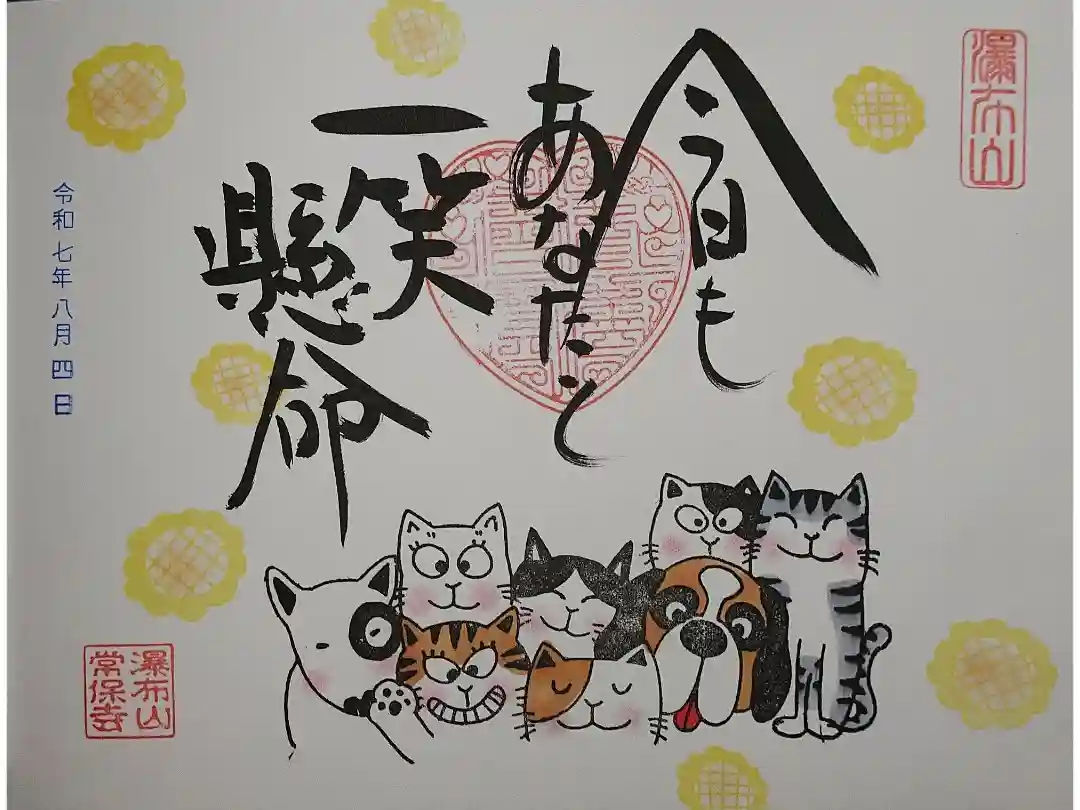 瀑布山
今日も
あなたと
一笑
懸命
令和七年八月四日
瀑布山
常保寺